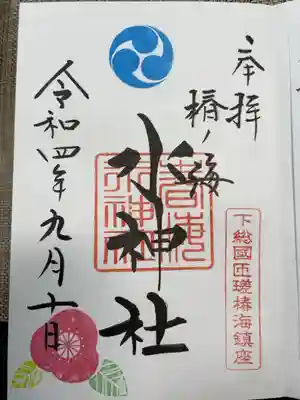 奉拝
椿ノ海
水神社
令和四年九月十日
下総國匝瑳椿海鎮座